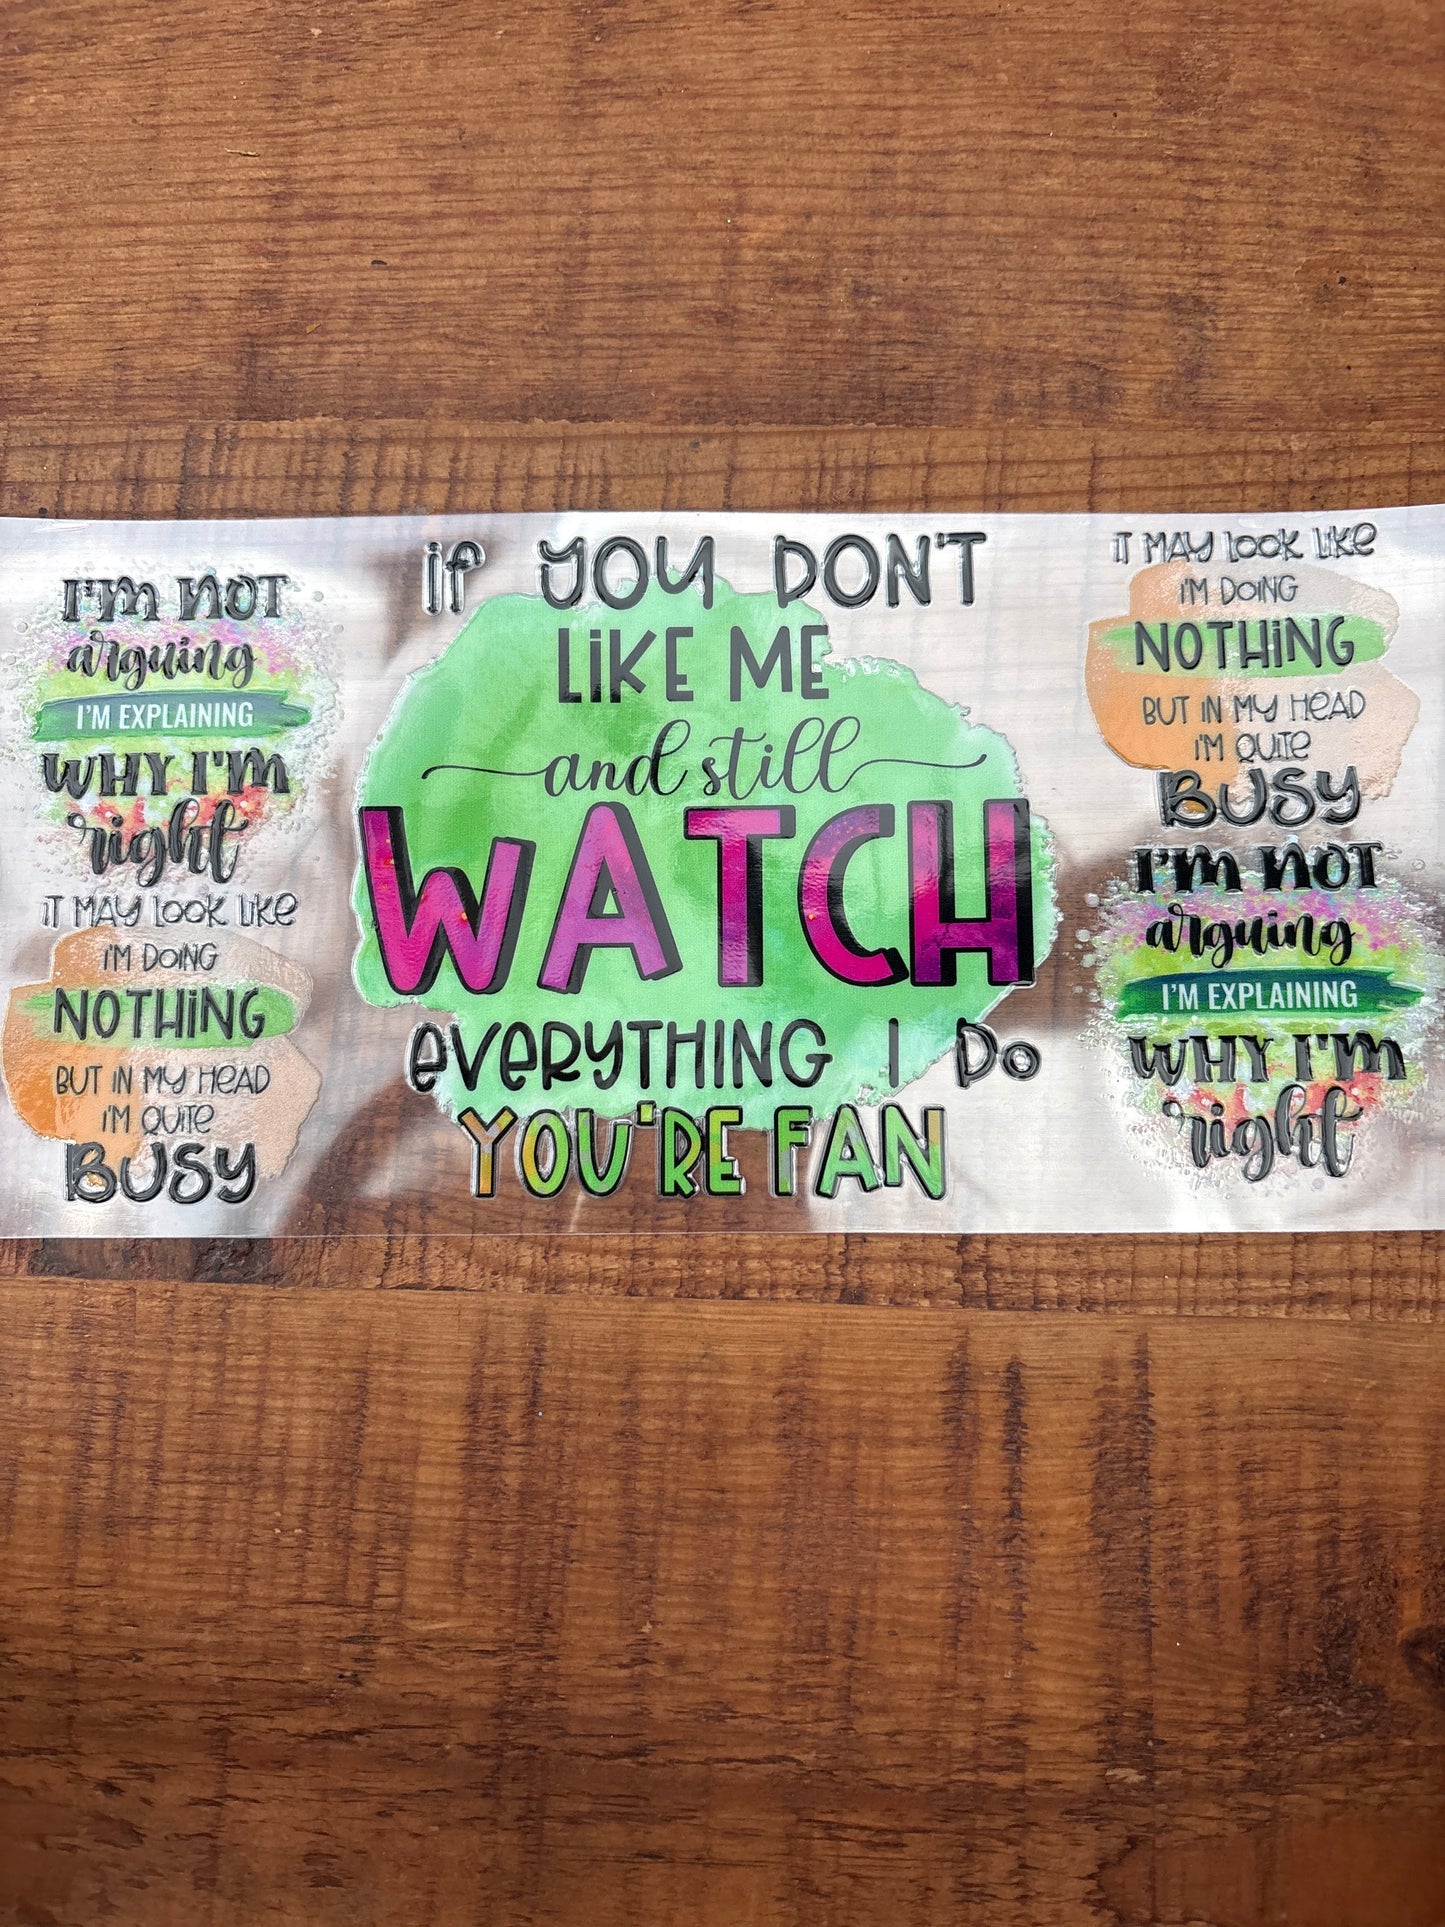 I'M NOT
arguing
I'M EXPLAINING
WHY I'M
right
iT MAY LOOK LIKE
I'M DOING
NOTHiNG
BUT IN MY HEAD
I'M QUiTe
BUSY
iF YOU DON'T
LiKE ME
and still
WATCH
eVeRYTHING I Do
YOU'RE FAN
iT MAY LOOK LIKE
I'M DOING
NOTHiNG
BUT IN MY HEAD
I'M QUiTe
BUSY
I'M NOT
arguing
I'M EXPLAINING
WHY I'M
right